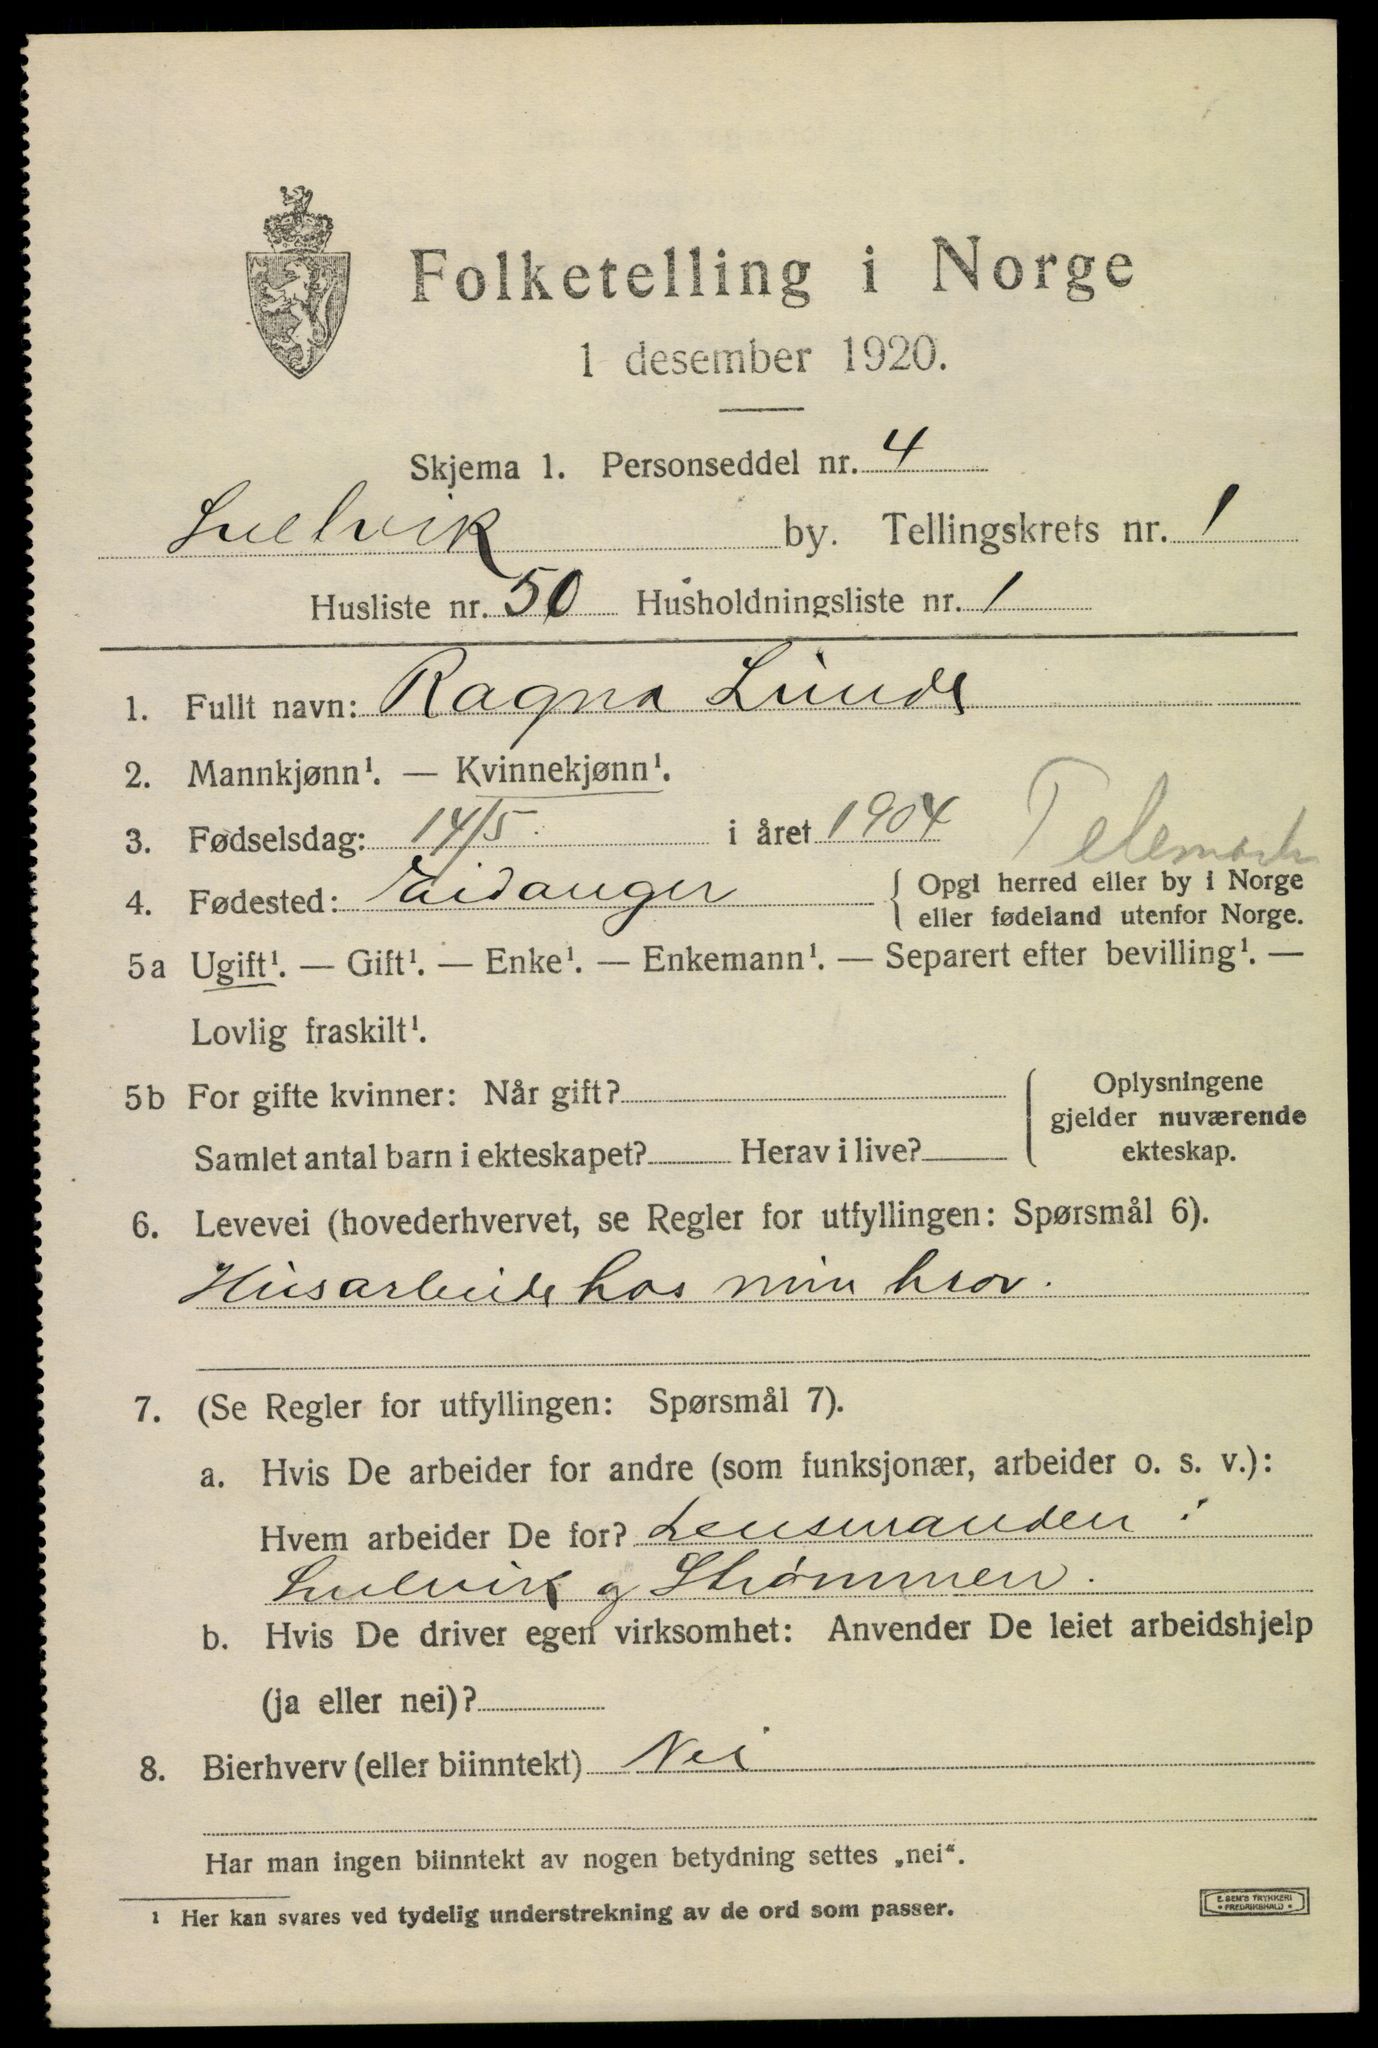 Folketelling i Norge
1 desember 1920.
Skjema 1. Personseddel nr. 4
Svelvik by. Tellingskrets nr. 1
Husliste nr. 50 Husholdningsliste nr. 1
1. Fullt navn: Ragna Lunde
2. Mannkjønn¹. — Kvinnekjønn¹.
3. Fødselsdag: 14/5 i året 1904 Telemark
4. Fødested: Eidanger { Opgi herred eller by i Norge
eller fødeland utenfor Norge.
5a Ugift¹. — Gift¹. — Enke¹. — Enkemann¹. — Separert efter bevilling¹. —
Lovlig fraskilt¹.
5b For gifte kvinner: Når gift?
Samlet antal barn i ekteskapet? Herav i live?
Oplysningene
gjelder nuværende
ekteskap.
6. Levevei (hovederhvervet, se Regler for utfyllingen: Spørsmål 6).
Husarbeide hos min bror.
7. (Se Regler for utfyllingen: Spørsmål 7).
a. Hvis De arbeider for andre (som funksjonær, arbeider o. s. v.):
Hvem arbeider De for? Lensmanden i
Svelvik og Strømmen.
b. Hvis De driver egen virksomhet: Anvender De leiet arbeidshjelp
(ja eller nei)?
8. Bierhverv (eller biinntekt) Nei
Har man ingen biinntekt av nogen betydning settes „nei“.
¹ Her kan svares ved tydelig understrekning av de ord som passer.
E. SEM'S TRYKKERI
• FREDRIKSHALD •